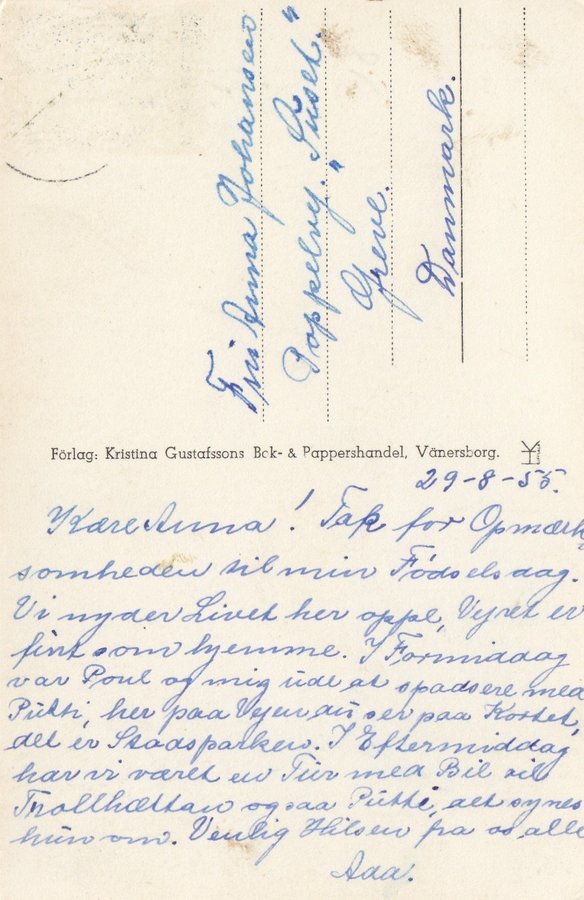 Fru Anna Johansen
Poppelvej. "Huset."
Greve.
Danmark.
Förlag: Kristina Gustafssons Bok- & Pappershandel, Vänersborg.
29-8-55.
Kære Anna! Tak for Opmærk-
somheden til min Fødselsdag.
Vi nyder Livet her oppe, Vejret er
fint som hjemme. I Formiddag
var Poul og mig ude at spadsere med
Putti, her paa Vejen du ser paa Kortet,
det er Stadsparken. I Eftermiddag
har vi været en Tur med Bil til
Trollhättan ogsaa Putti, det synes
hun om. Venlig Hilsen fra os alle
Ada.